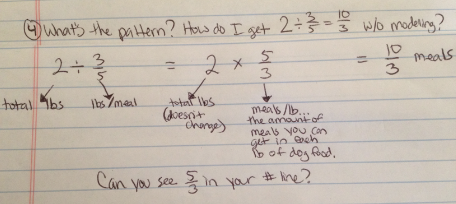 ④ What's the pattern? How do I get 2 ÷ 3/5 = 10/3 w/o modeling?
2 ÷ 3/5 = 2 × 5/3 = 10/3 meals
total lbs lbs/meal total lbs (doesn't change) meals/lb... the amount of meals you can get in each lb of dog food.
Can you see 5/3 in your # line?